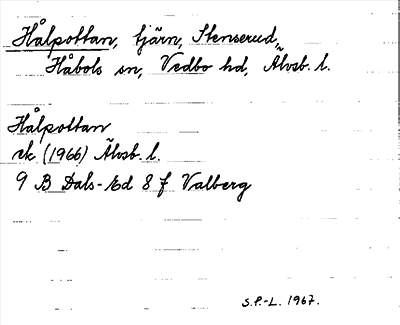 Hålpottan, tjärn, Stenserud,
Håbols sn, Vedbo hd, Älvsb. l.
Hålpottan
ek (1966) Älvsb. l.
9 B Dals-Ed 8 f Valberg
S.P.-L. 1967.